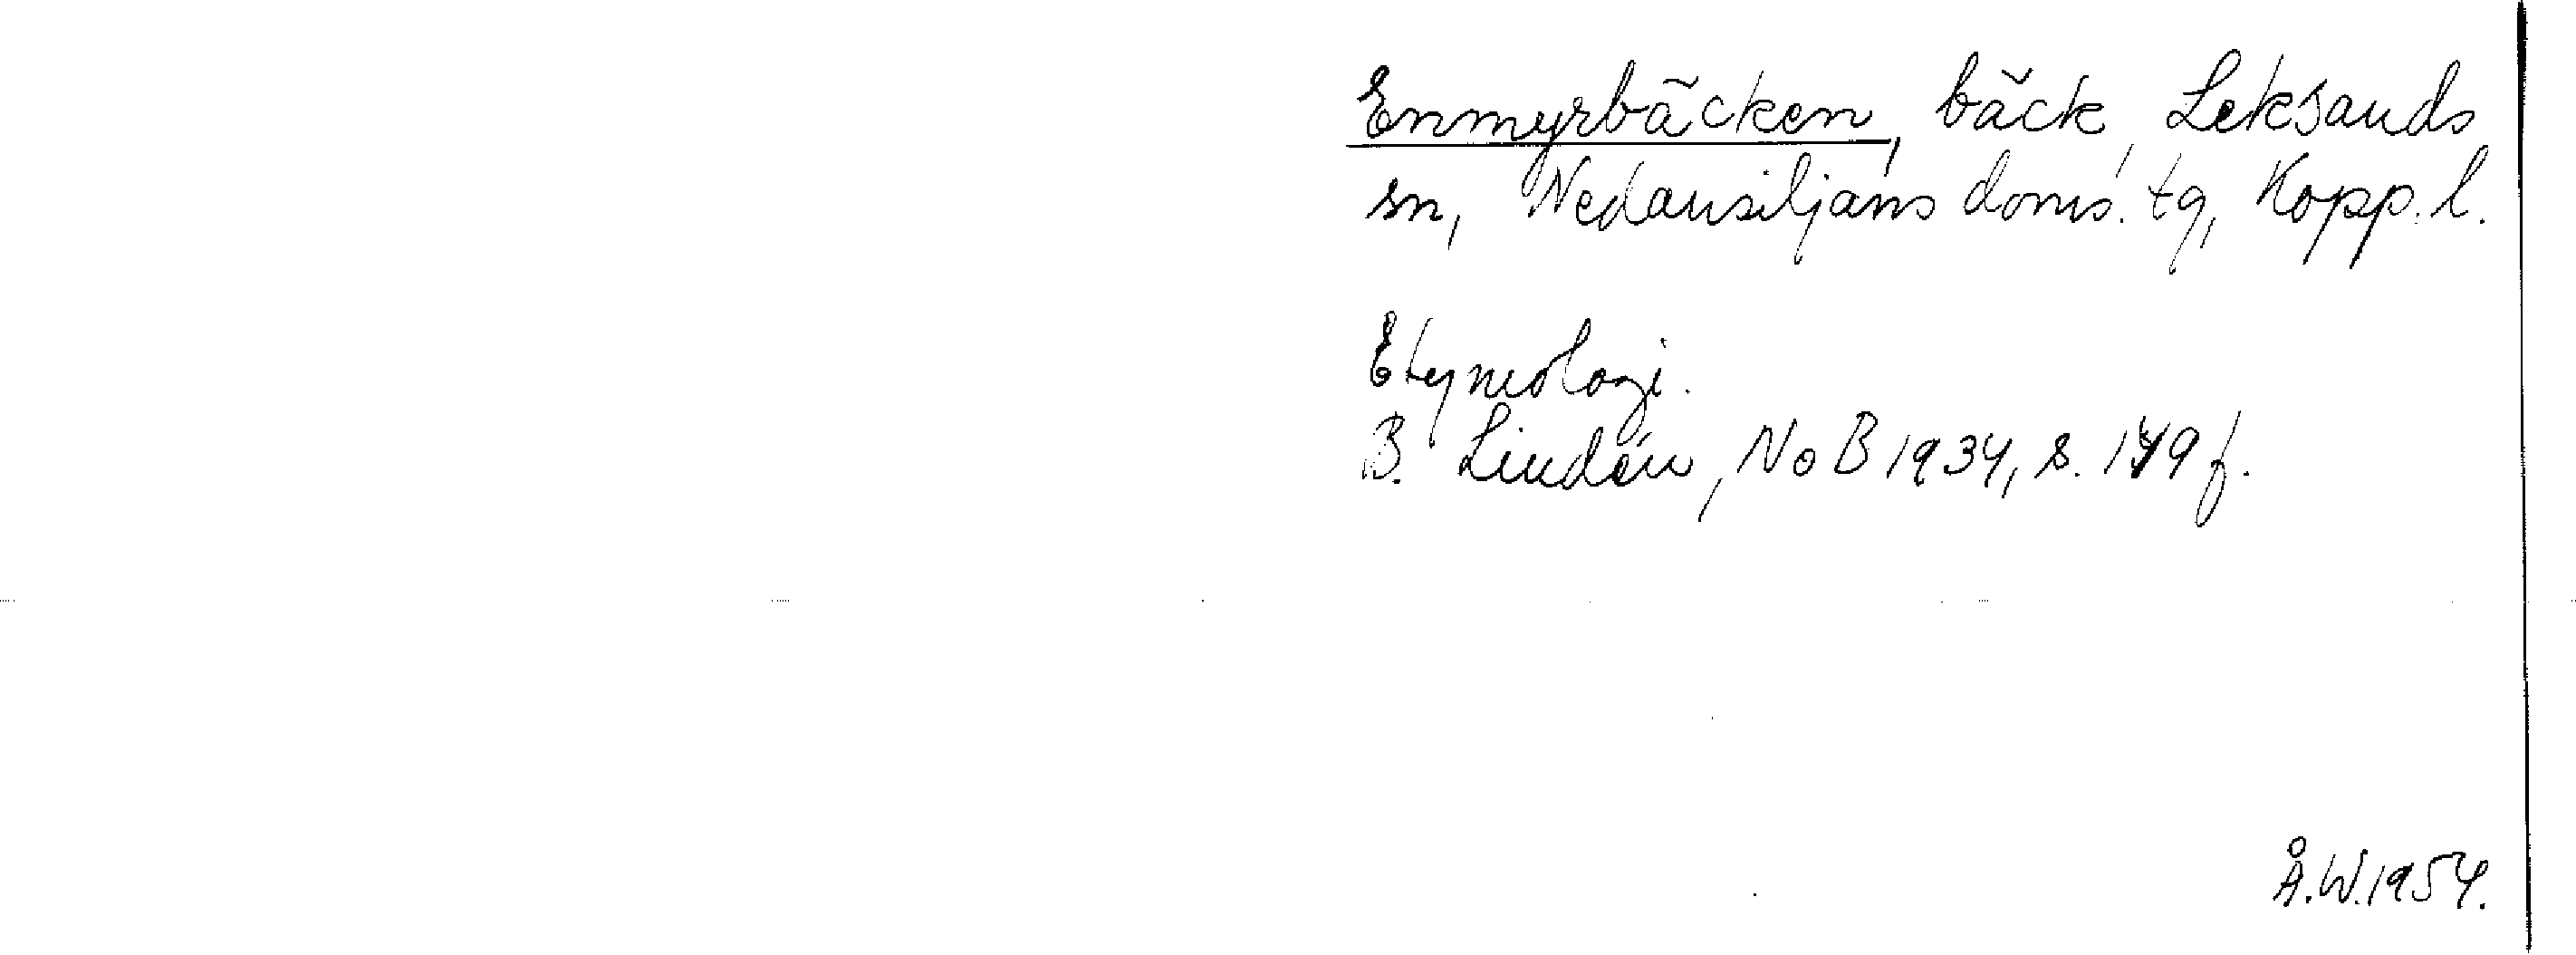 Enmyrbäcken, bäck, Leksands
sn, Nedansiljans doms. tg, Kopp. l.
Etymologi.
B. Lindén, NoB 1934, s. f.
Å.W. 1954.